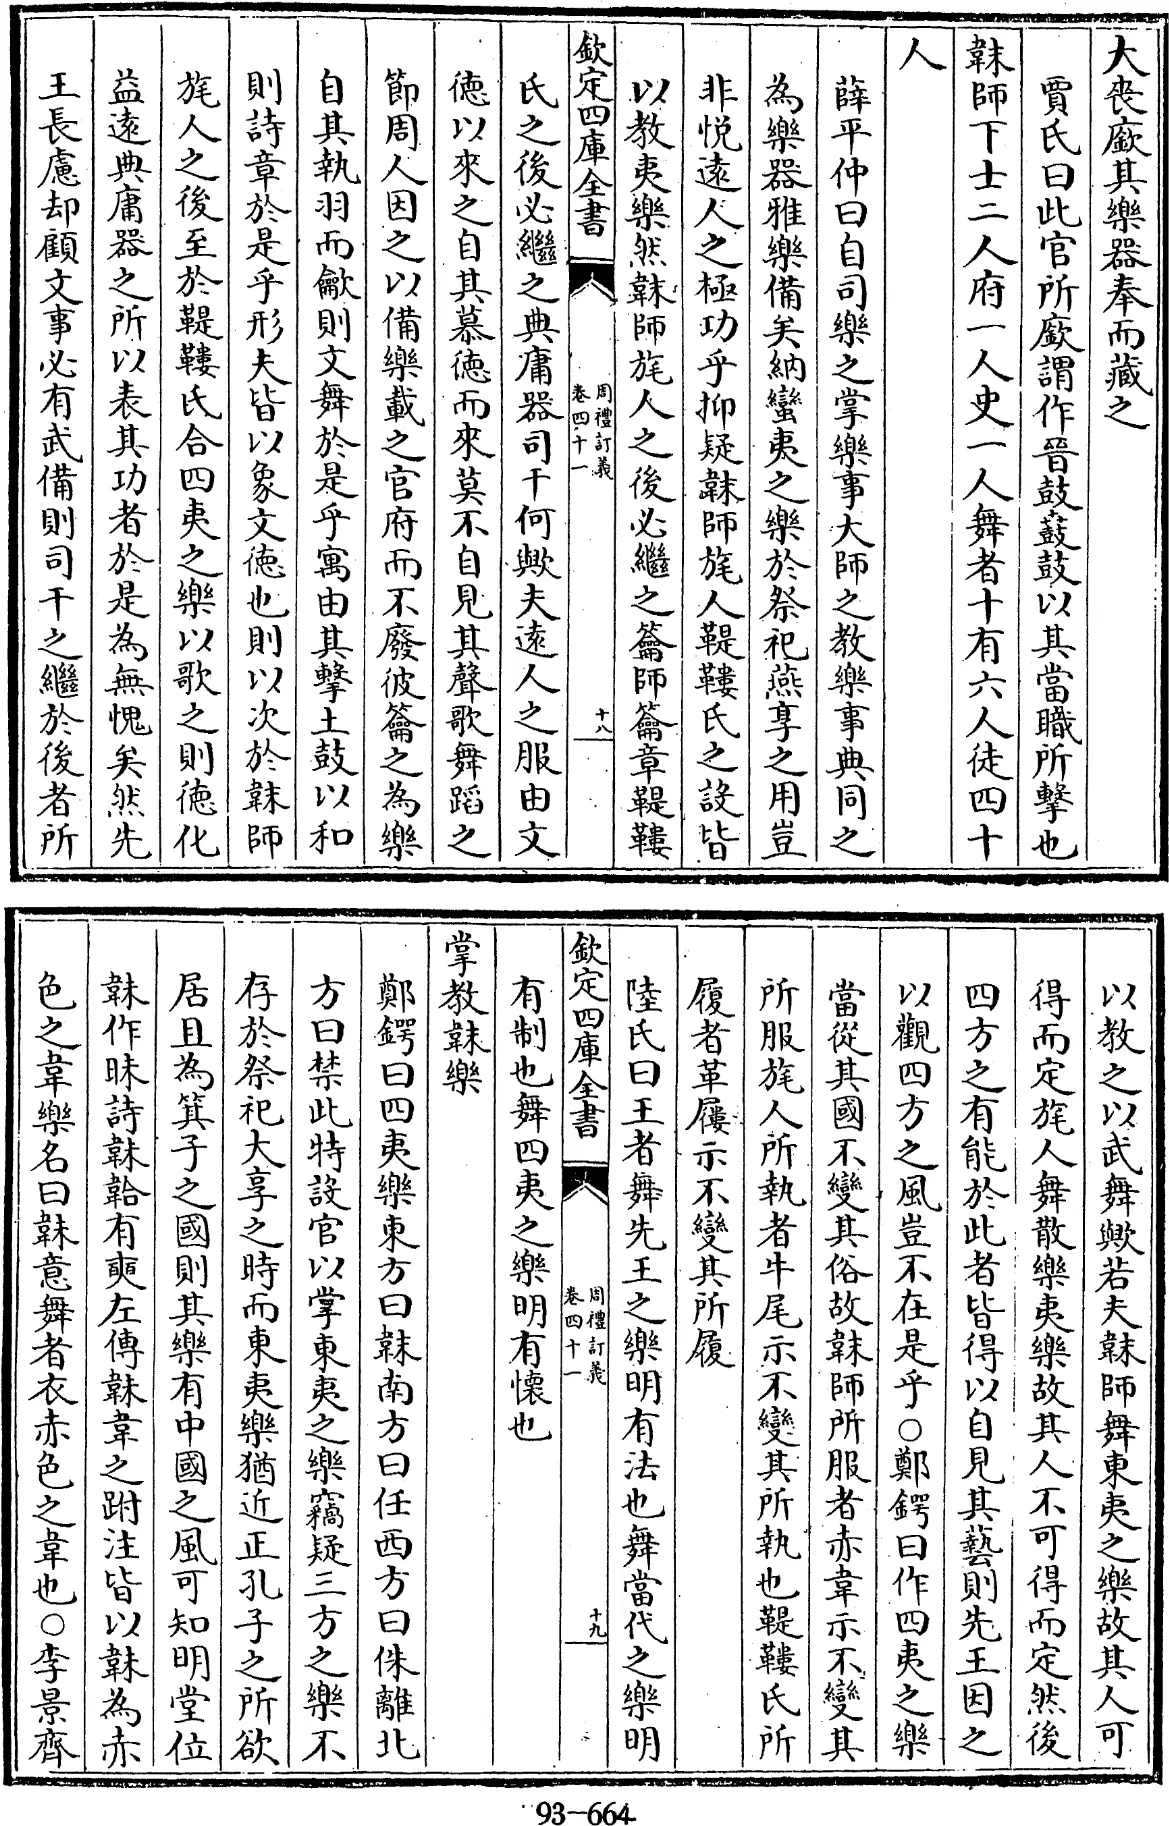 大喪廞其樂器奉而藏之
賈氏曰此官所廞謂作晉鼓鼖鼓以其當職所擊也
韎師下士二人府一人史一人舞者十有六人徒四十
人
薛平仲曰自司樂之掌樂事大師之教樂事典同之
為樂器雅樂備矣納蠻夷之樂於祭祀燕享之用豈
非悅遠人之極功乎抑疑韎師旄人鞮鞻氏之設皆
以教夷樂然韎師旄人之後必繼之籥師籥章鞮鞻
欽定四庫全書
周禮訂義
卷四十一
十八
氏之後必繼之典庸器司干何歟夫遠人之服由文
德以來之自其慕德而來莫不自見其聲歌舞蹈之
節周人因之以備樂載之官府而不廢彼籥之為樂
自其執羽而龡則文舞於是乎寓由其擊土鼓以和
則詩章於是乎形夫皆以象文德也則以次於韎師
旄人之後至於鞮鞻氏合四夷之樂以歌之則德化
益遠典庸器之所以表其功者於是為無愧矣然先
王長慮却顧文事必有武備則司干之繼於後者所
以教之以武舞歟若夫韎師舞東夷之樂故其人可
得而定旄人舞散樂夷樂故其人不可得而定然後
四方之有能於此者皆得以自見其藝則先王因之
以觀四方之風豈不在是乎○鄭鍔曰作四夷之樂
當從其國不變其俗故韎師所服者赤韋示不變其
所服旄人所執者牛尾示不變其所執也鞮鞻氏所
履者革屨示不變其所履
陸氏曰王者舞先王之樂明有法也舞當代之樂明
欽定四庫全書
周禮訂義
卷四十一
十九
有制也舞四夷之樂明有懷也
掌教韎樂
鄭鍔曰四夷樂東方曰韎南方曰任西方曰侏離北
方曰禁此特設官以掌東夷之樂竊疑三方之樂不
存於祭祀大享之時而東夷樂猶近正孔子之所欲
居且為箕子之國則其樂有中國之風可知明堂位
韎作昧詩韎韐有奭左傳韎韋之跗注皆以韎為赤
色之韋樂名曰韎意舞者衣赤色之韋也○李景齊
93-664